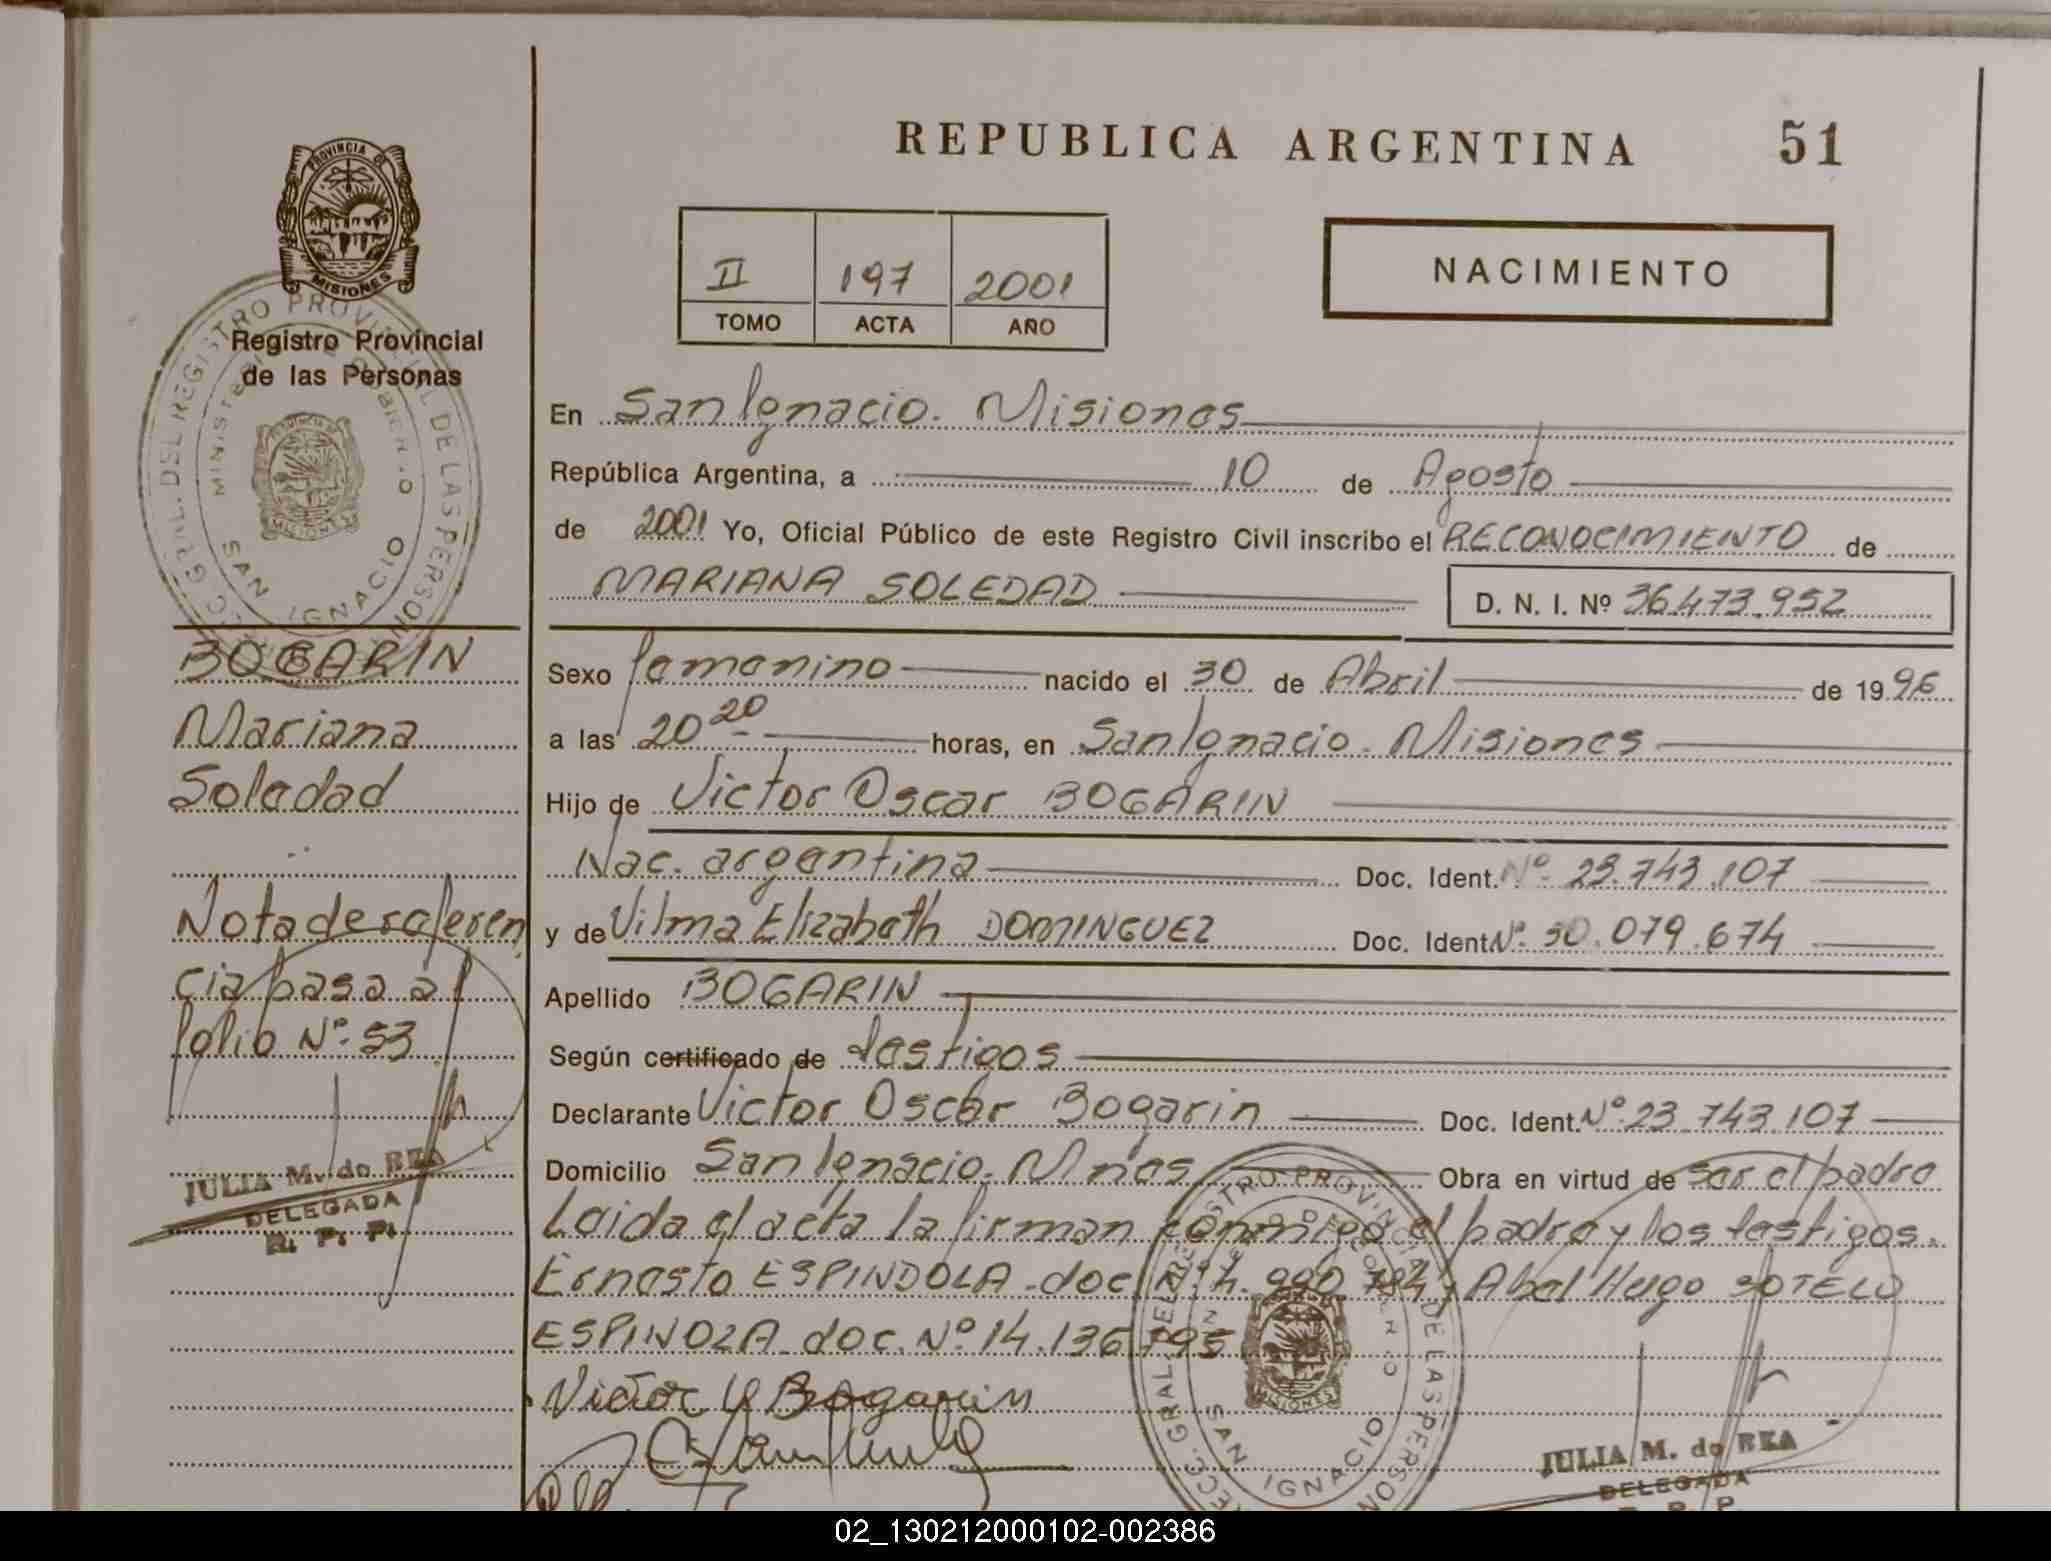 REPUBLICA ARGENTINA 51
PROVINCIA DE
MISIONES
Registro Provincial
de las Personas
II 197 2001
TOMO ACTA AÑO
NACIMIENTO
En San Ignacio. Misiones
República Argentina, a 10 de Agosto
de 2001 Yo, Oficial Público de este Registro Civil inscribo el RECONOCIMIENTO de
MARIANA SOLEDAD D. N. I. Nº 36.473.952
Sexo femenino nacido el 30 de Abril de 1996
a las 20 20 horas, en San Ignacio. Misiones
Hijo de Victor Oscar BOGARIN
Nac. argentina Doc. Ident. Nº 23.743.107
y de Vilma Elizabeth DOMINGUEZ Doc. Ident. Nº 30.079.674
Apellido BOGARIN
Según certificado de testigos
Declarante Victor Oscar Bogarin Doc. Ident. Nº 23.743.107
Domicilio San Ignacio. Mnes Obra en virtud de ser el padre
Leida el acta la firman conmigo el padre y los testigos.
Ernesto ESPINDOLA doc. Nº 4.990.794 y Abel Hugo SOTELO
ESPINOZA doc. Nº 14.136.795
Victor O Bogarin
BOGARIN
Mariana
Soledad
Nota de referen
cia pasa a
folio Nº 53
JULIA M. de REA
DELEGADA
R. P. P.
REGISTRO PROVINCIAL DE LAS PERSONAS
SAN IGNACIO
MISIONES
JULIA M. de REA
DELEGADA
R. P. P.
02_130212000102-002386